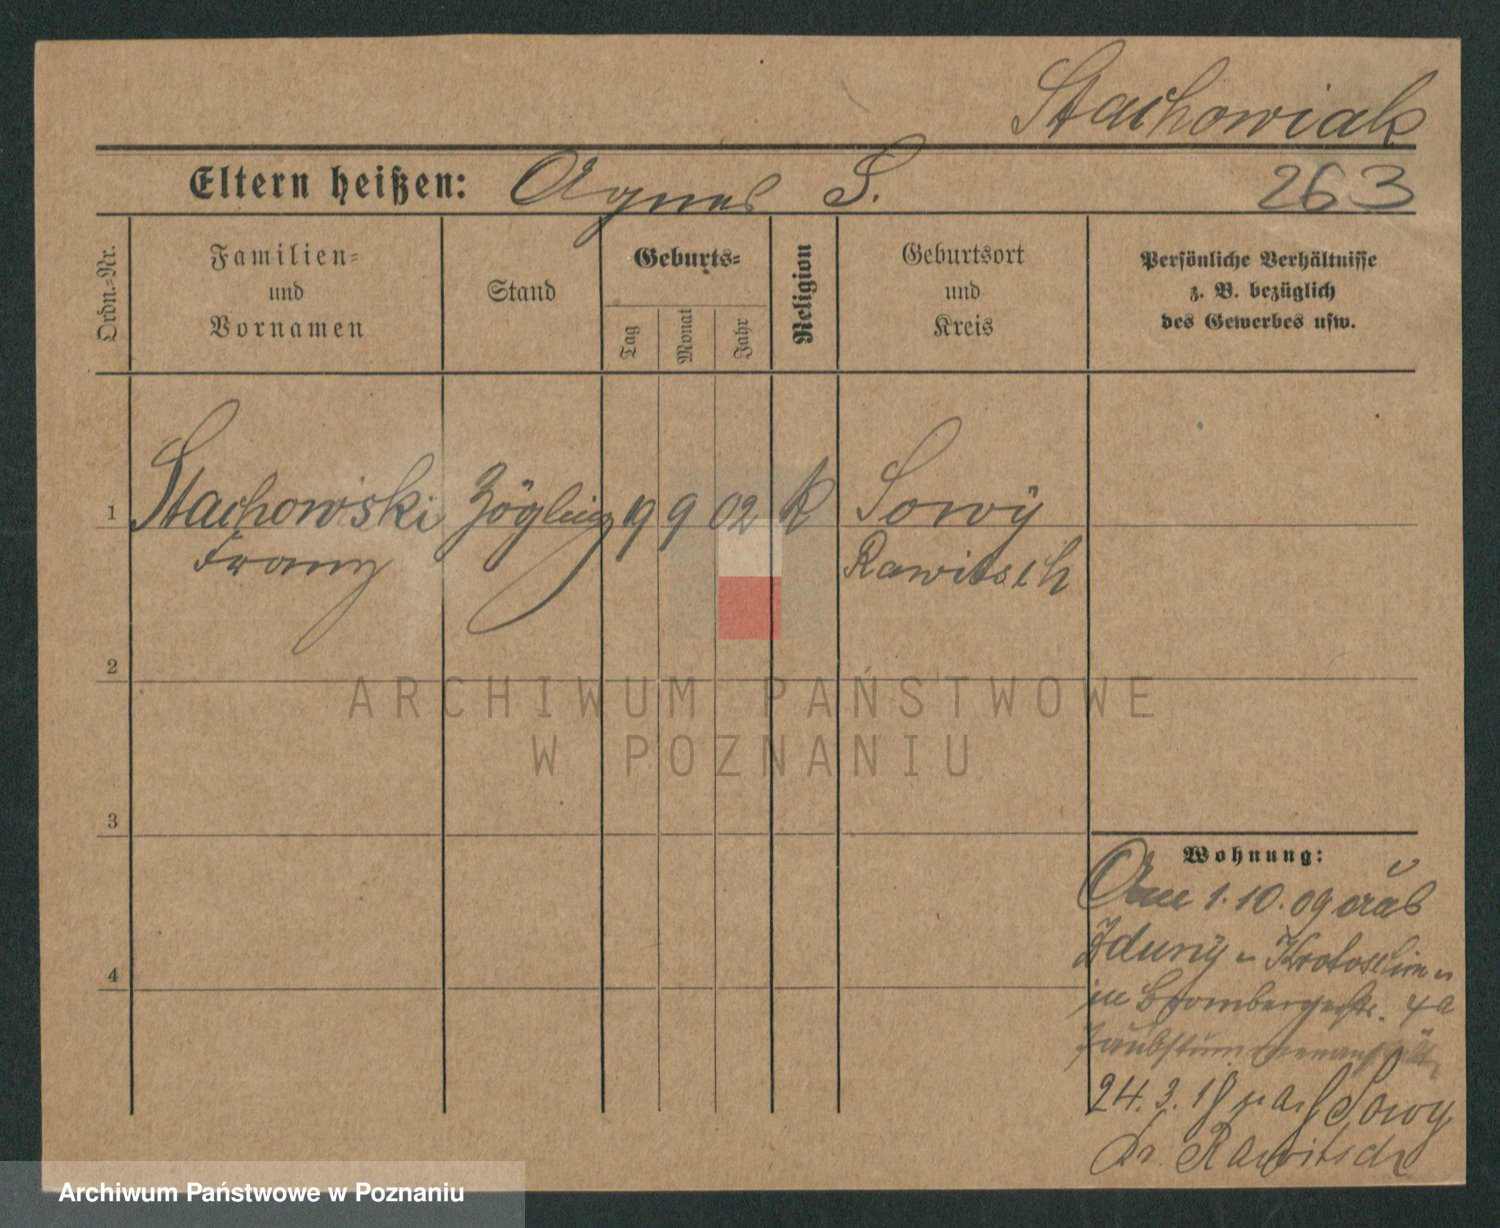 Stachowiak
Eltern heißen: Agnes S. 263
Ordn.-Nr.
Familien-
und
Vornamen
Stand
Geburts-
Tag
Monat
Jahr
Religion
Geburtsort
und
Kreis
Persönliche Verhältnisse
z. B. bezüglich
des Gewerbes usw.
1 Stachowski Zögling 19 9 02 K Sowy
Franz Rawitsch
2
3
4
Wohnung:
Am 1.10.09 aus
Zduny Krotoschin
in Brombergerstr. 4a
Taubstummenanstalt
24.3.18 nach Sowy
Kr. Rawitsch
ARCHIWUM PAŃSTWOWE
W POZNANIU
Archiwum Państwowe w Poznaniu